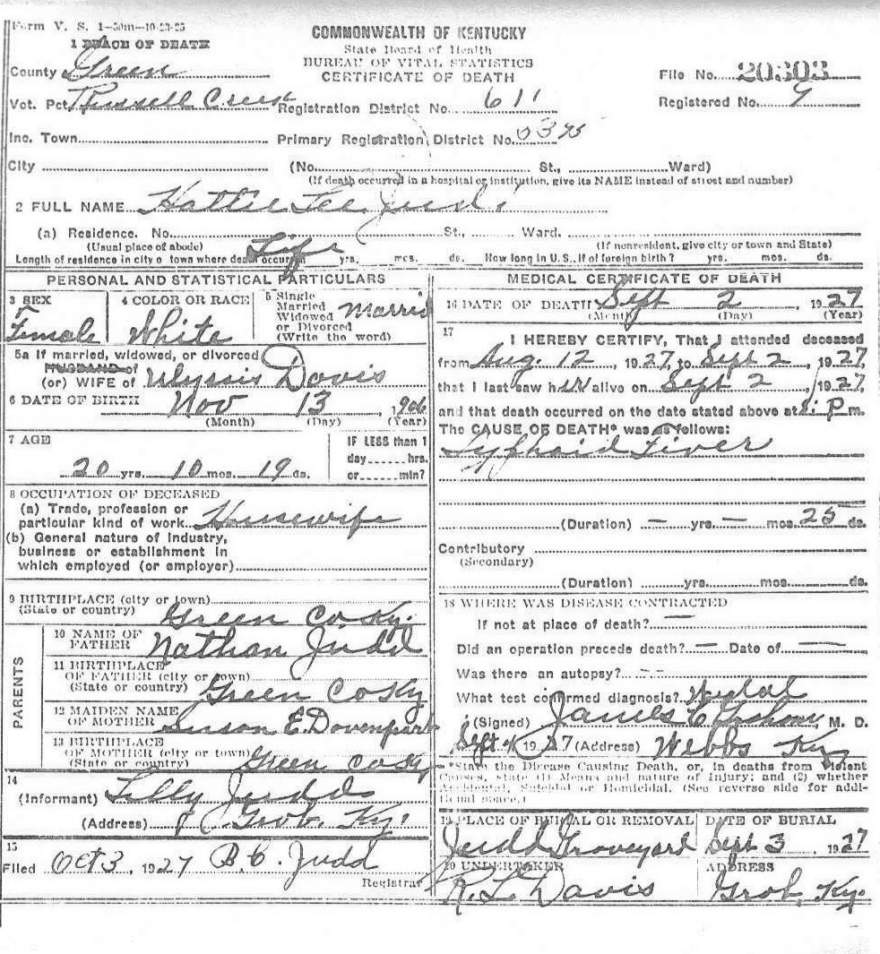 Form V. S. 1-50m-10-23-25
COMMONWEALTH OF KENTUCKY
State Board of Health
BUREAU OF VITAL STATISTICS
CERTIFICATE OF DEATH
1 PLACE OF DEATH
County Green
Vot. Pct. Russell Creek
Inc. Town
City
Registration District No. 611
Primary Registration District No.
File No. 20303
Registered No. 9
(No. St., Ward)
(If death occurred in a hospital or institution, give its NAME instead of street and number)
2 FULL NAME Hattie Lee Judd
(a) Residence. No. St., Ward.
(Usual place of abode) (If nonresident, give city or town and State)
Length of residence in city o town where death occurred Life yrs. mos. ds. How long in U. S., if of foreign birth? yrs. mos. ds.
PERSONAL AND STATISTICAL PARTICULARS
3 SEX Female
4 COLOR OR RACE White
5 Single
Married
Widowed
or Divorced
(Write the word) Marrid
5a If married, widowed, or divorced
HUSBAND of
(or) WIFE of Ulyssis Davis
6 DATE OF BIRTH Nov 13, 1906
(Month) (Day) (Year)
7 AGE
20 yrs. 10 mos. 19 ds.
IF LESS than 1
day hrs.
or min?
8 OCCUPATION OF DECEASED
(a) Trade, profession or
particular kind of work Housewife
(b) General nature of industry,
business or establishment in
which employed (or employer)
9 BIRTHPLACE (city or town)
(State or country) Green Co Ky.
PARENTS
10 NAME OF
FATHER Nathan Judd
11 BIRTHPLACE
OF FATHER (city or town)
(State or country) Green Co Ky
12 MAIDEN NAME
OF MOTHER Susan E. Davenport
13 BIRTHPLACE
OF MOTHER (city or town)
(State or country) Green Co Ky
14
(Informant) Lilly Judd
(Address) Grob. Ky.
15
Filed Oct 3, 1927 B. C. Judd
Registrar
MEDICAL CERTIFICATE OF DEATH
16 DATE OF DEATH Sept 2, 1927
(Month) (Day) (Year)
17
I HEREBY CERTIFY, That I attended deceased
from Aug. 12, 1927, to Sept 2, 1927,
that I last saw her alive on Sept 2, 1927,
and that death occurred on the date stated above at P m.
The CAUSE OF DEATH* was as follows:
Tyfhoid Fiver
(Duration) — yrs. — mos. 25 ds.
Contributory
(Secondary)
(Duration) yrs. mos. ds.
18 WHERE WAS DISEASE CONTRACTED
If not at place of death? —
Did an operation precede death? — Date of —
Was there an autopsy? --
What test confirmed diagnosis? Widal
(Signed) James C M. D.
Sept 1927 (Address) Webbs Ky
*State the Disease Causing Death, or, in deaths from Violent
Causes, state (1) Means and nature of Injury; and (2) whether
Accidental, Suicidal or Homicidal. (See reverse side for addi-
tional space.)
19 PLACE OF BURIAL OR REMOVAL
Judd Graveyard
DATE OF BURIAL
Sept 3 1927
20 UNDERTAKER
R. L. Davis
ADDRESS
Grob, Ky.